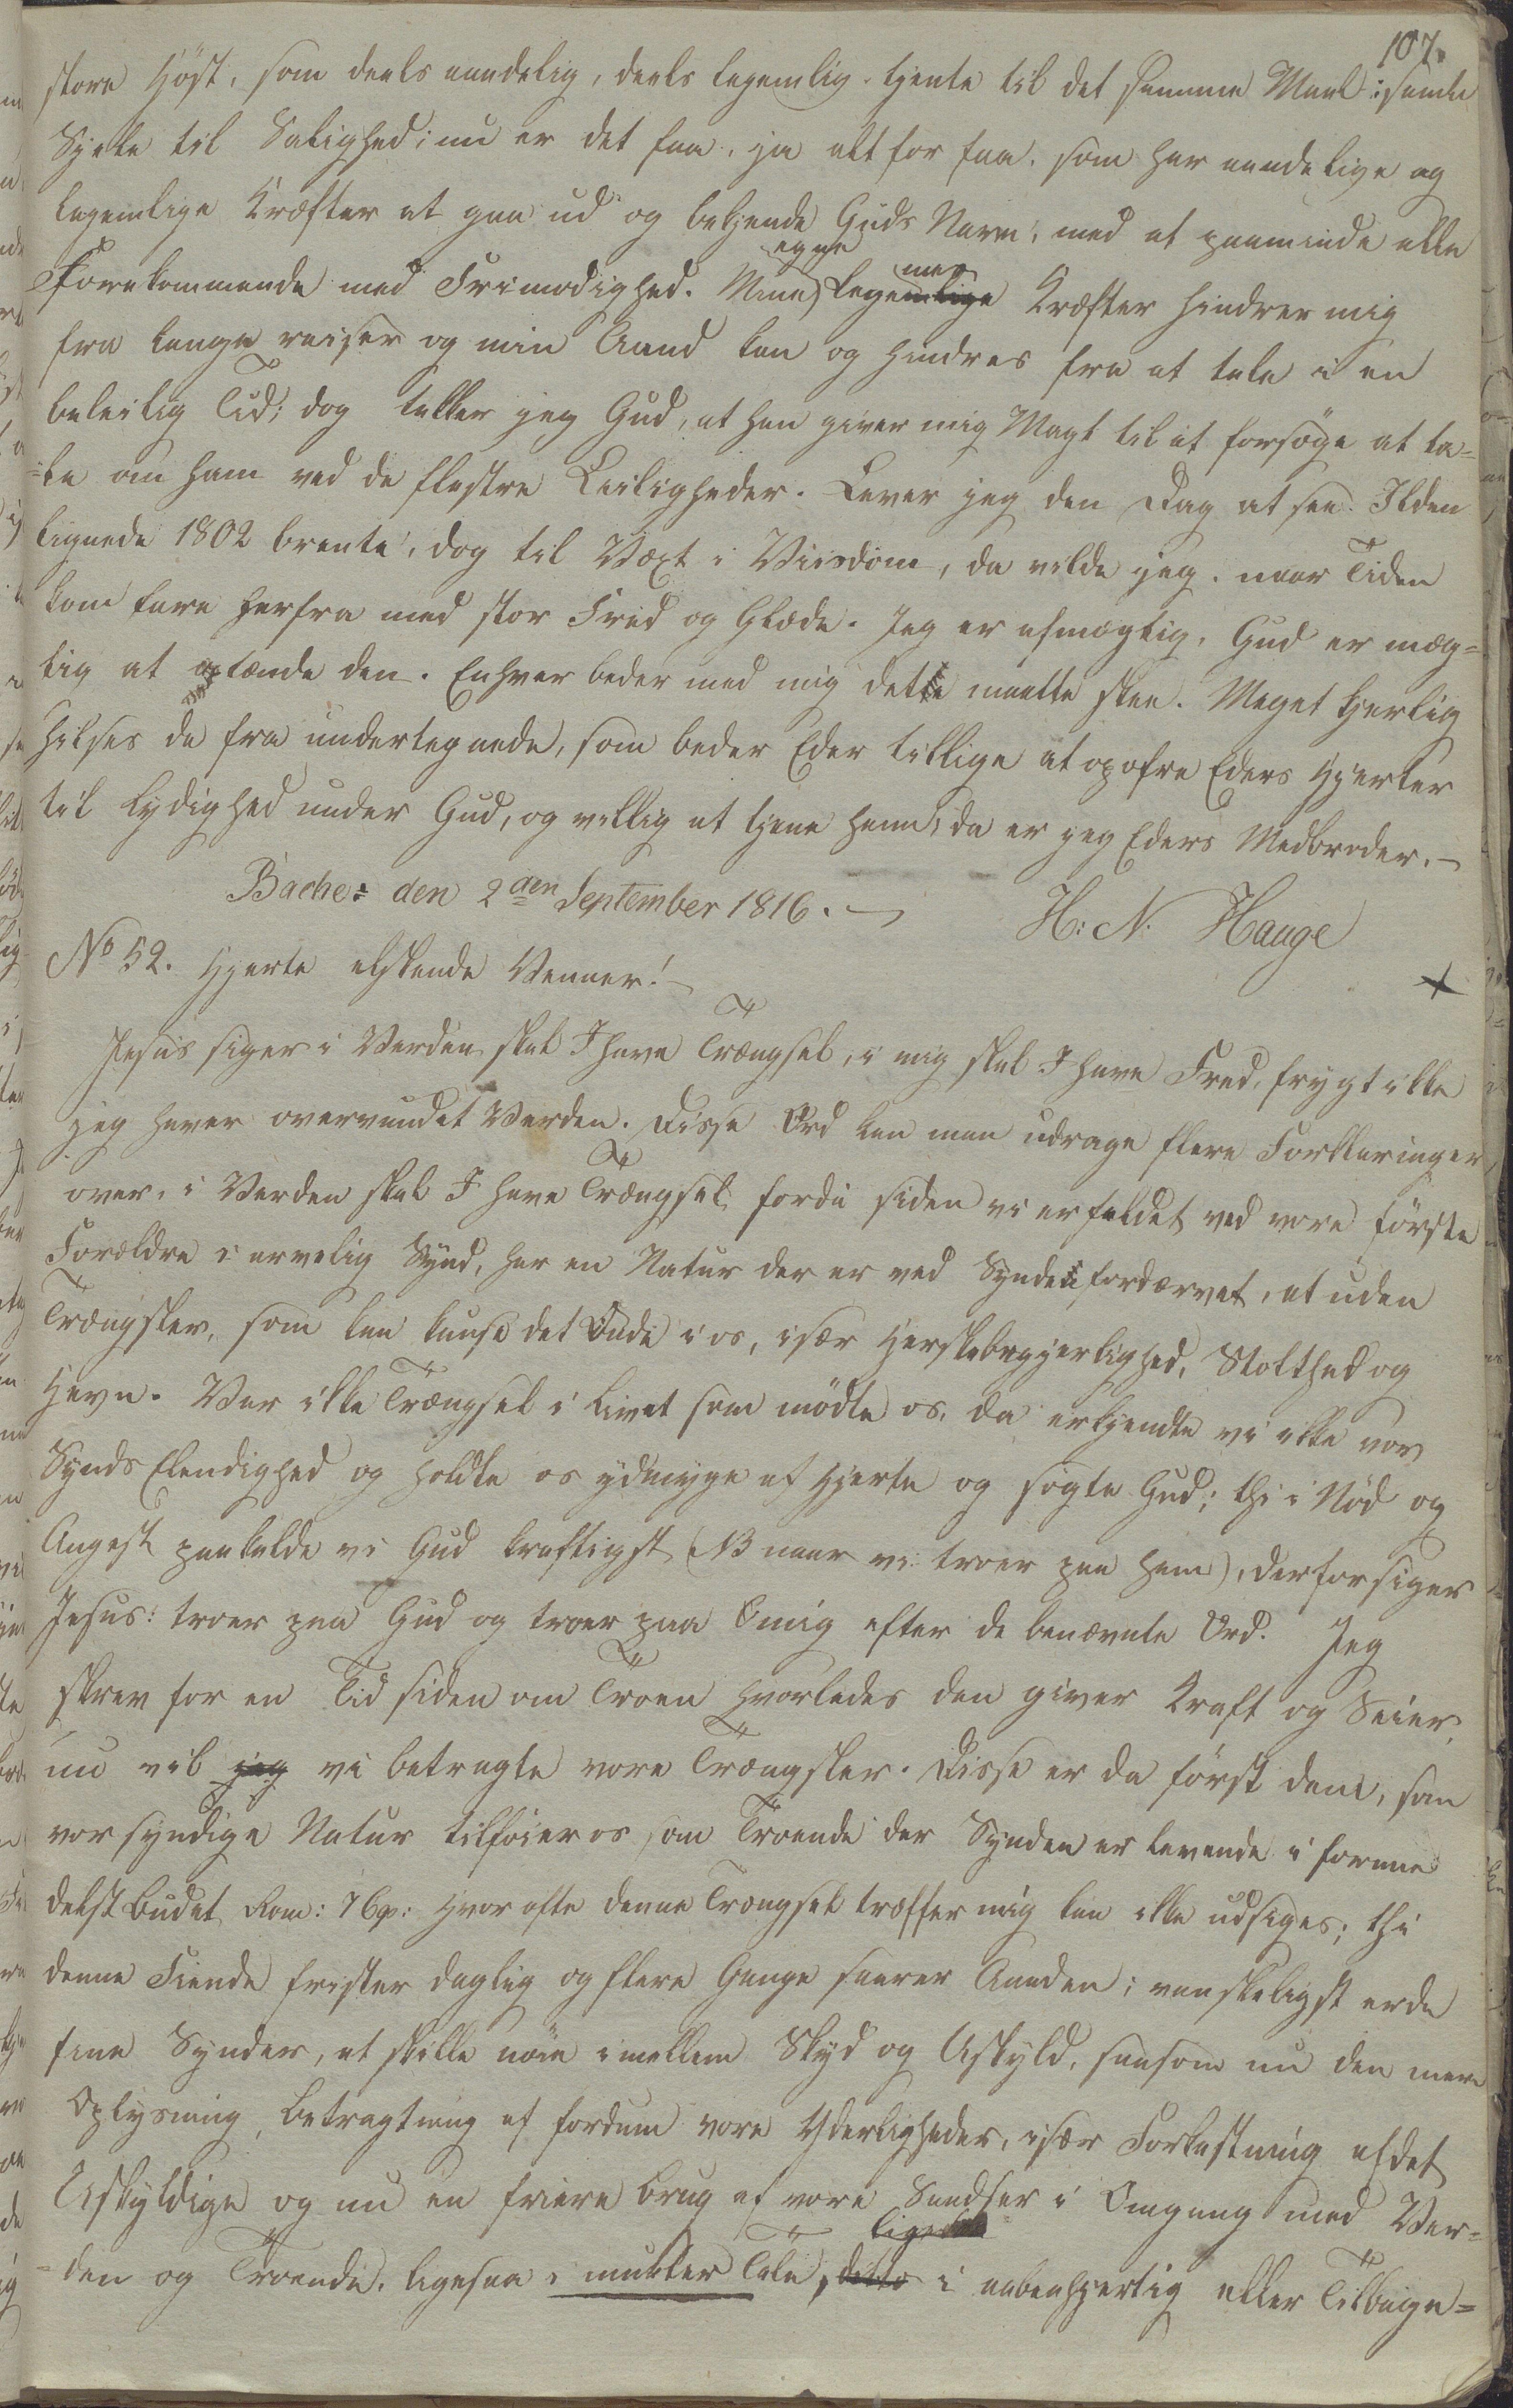 107.
store Høst, som deels aandelig, deels legemlig tjente til det samme Maal: samle
Sjele til Salighed; nu er det faa, ja alt for faa, som har aandelige og
legemlige Kræfter at gaa ud og bekjende Guds Navn, med at paaminde alle
Forekommende med Frimodighed. Mine egne Legemes Kræfter hindrer mig
fra lange reiser og min Aand kan og hindres fra at tale i en
beleilig Tid; dog takker jeg Gud, at han giver mig Magt til at forsøge at ta-
-le om ham ved de flestre Leiligheder. Lever jeg den Dag at see Ilden
lignede 1802 brente, dog til Væxt i Viisdom, da vilde jeg, naar Tiden
kom fare herfra med stor Fred og Glæde. Jeg er afmægtig, Gud er mæg-
tig at optænde den. Enhver beder med mig dette maatte skee. Meget kjerlig
hilses da fra undertegnede, som beder Eder tillige at opofre Eders Hjerter
til Lydighed under Gud, og villig at tjene ham, da er jeg Eders Medbroder. –
Bache: den 2den September 1816. – H: N. Hauge
No 52. Hjerte elskende Venner! –
Jesus siger i Verden skal I have Trængsel, i mig skal I have Fred, frygt ikke
jeg haver overvundet Verden. Disse Ord kan man udrage flere Forklaringer
over, i Verden skal I have Trængsel fordi siden vi er faldet ved vore første
Forældre i arvelig Synd, har en Natur der er ved Synden fordærvet, at uden
Trængsler, som kan kunse det Onde i os, især Herskebegjerlighed, Stolthed og
Hevn. Var ikke Trængsel i Livet som mødte os, da erkjendte vi ikke vor
Synds Elendighed og holdte os ydmyge af Hjerte og søgte Gud; thi i Nød og
Angest paakalde vi Gud kraftigst (NB naar vi troer paa ham), derfor siger
Jesus: troer paa Gud og troer paa mig efter de benævnte Ord. Jeg
skrev for en Tid siden om Troen hvorledes den giver Kraft og Seier,
nu vil jeg vi betragte vore Trængsler. Disse er da først den, som
vor syndige Natur tilføier os, om Troende der Synden er levende i forme
delst Budet Rom: 7 Cap: Hvor ofte denne Trængsel træffer mig kan ikke udsiges; thi
denne Fiende frister daglig og flere Gange saarer Aanden; vanskeligst er de
fine Synder, at skille nøie imellem Skyd og Uskyld, saasom nu den mere
Oplysning, Betragtning af fordum vore Yderligheder, især Forkastning af det
Uskyldige og nu en friere brug af vore Sandser i Omgang med Ver-
-den og Troende, ligesaa i mukker Tale, ditto i aabenhjertig eller Tilbage-